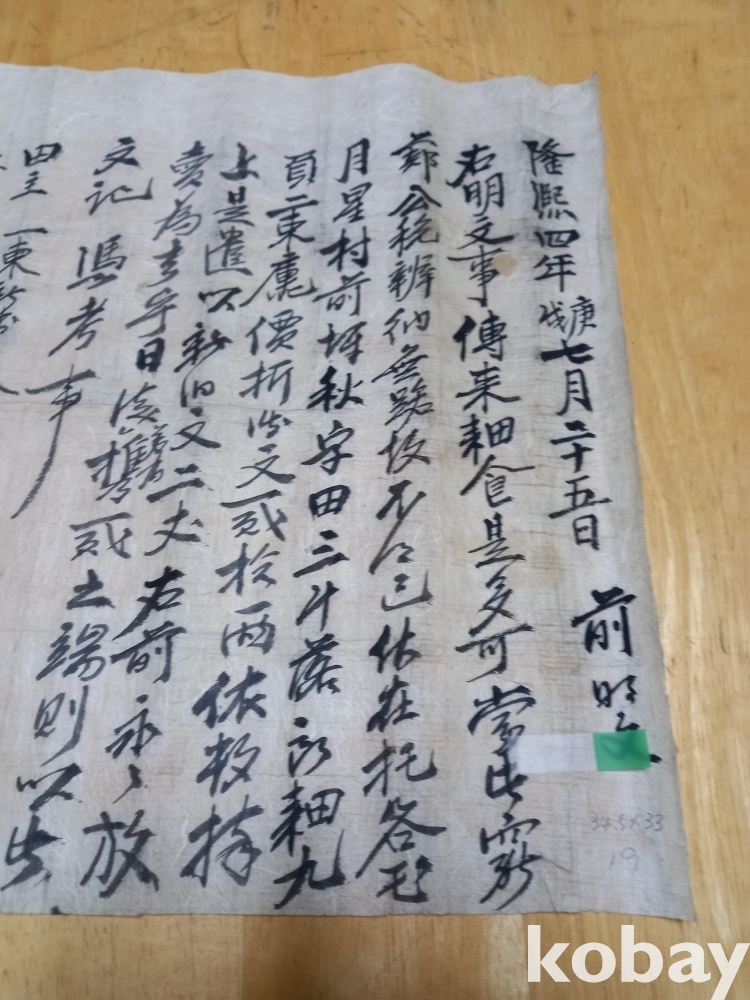 隆熙四年庚戌七月二十五日 前明文
右明文事傳來畊食是多可當此窮
節公稅辨納無路故不得已伏在托谷面
月星村前坪秋字田三斗落只畊九
負二束庫價折錢文貳拾兩依數捧
上是遣以新旧文二丈右前永永放
賣為去乎日後 貳之端則以此
文記 憑考事
田主 一東
34.5×33
19
kobay